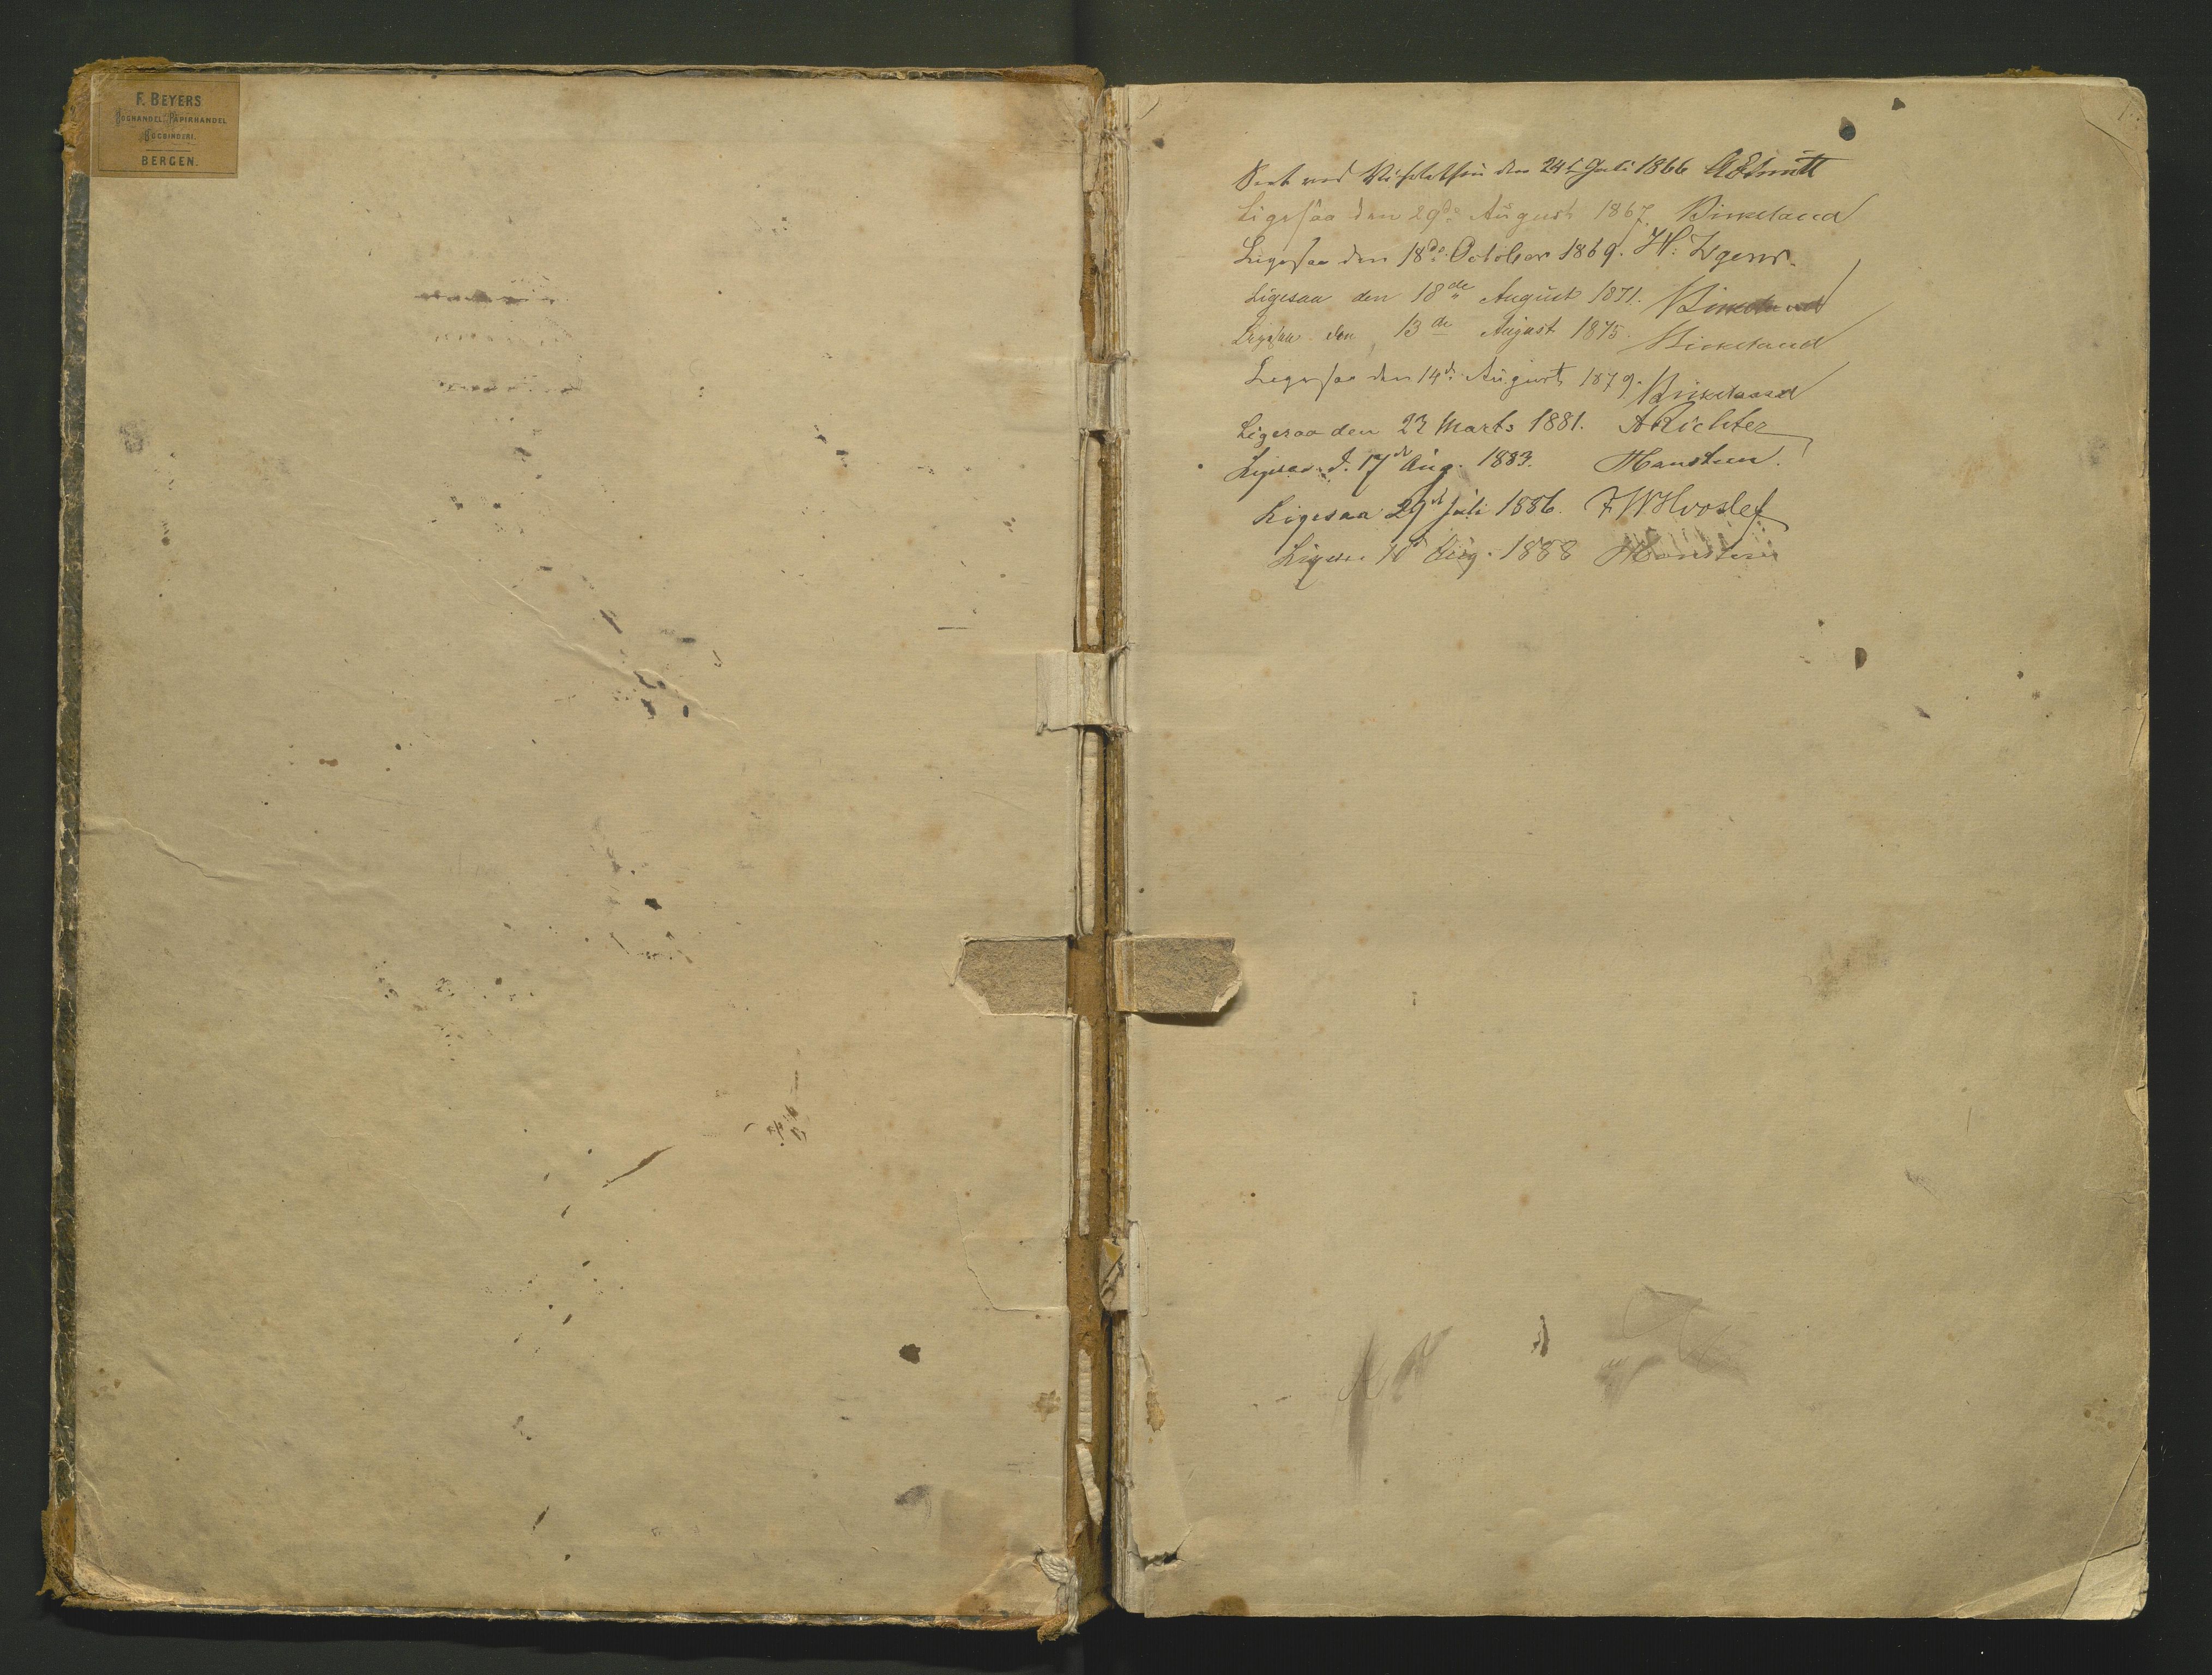 F. BEYERS
BOGHANDEL. PAPIRHANDEL
BOGBINDERI.
BERGEN.
1
Seet ved Visitatsen den 24de Juli 1866
Ligesaa den 29de August 1867. Birkeland
Ligesaa den 18de October 1869. H:
Ligesaa den 18de August 1871. Birkeland
Ligesaa den 13de August 1875. Birkeland
Ligesaa den 14de August 1879. Birkeland
Ligesaa den 23 Marts 1881. A Richter
Ligesaa d. 17de Aug. 1883. Hansteen.
Ligesaa 29de Juli 1886. F W Hvoslef
Ligesaa Aug. 1888 Hansteen